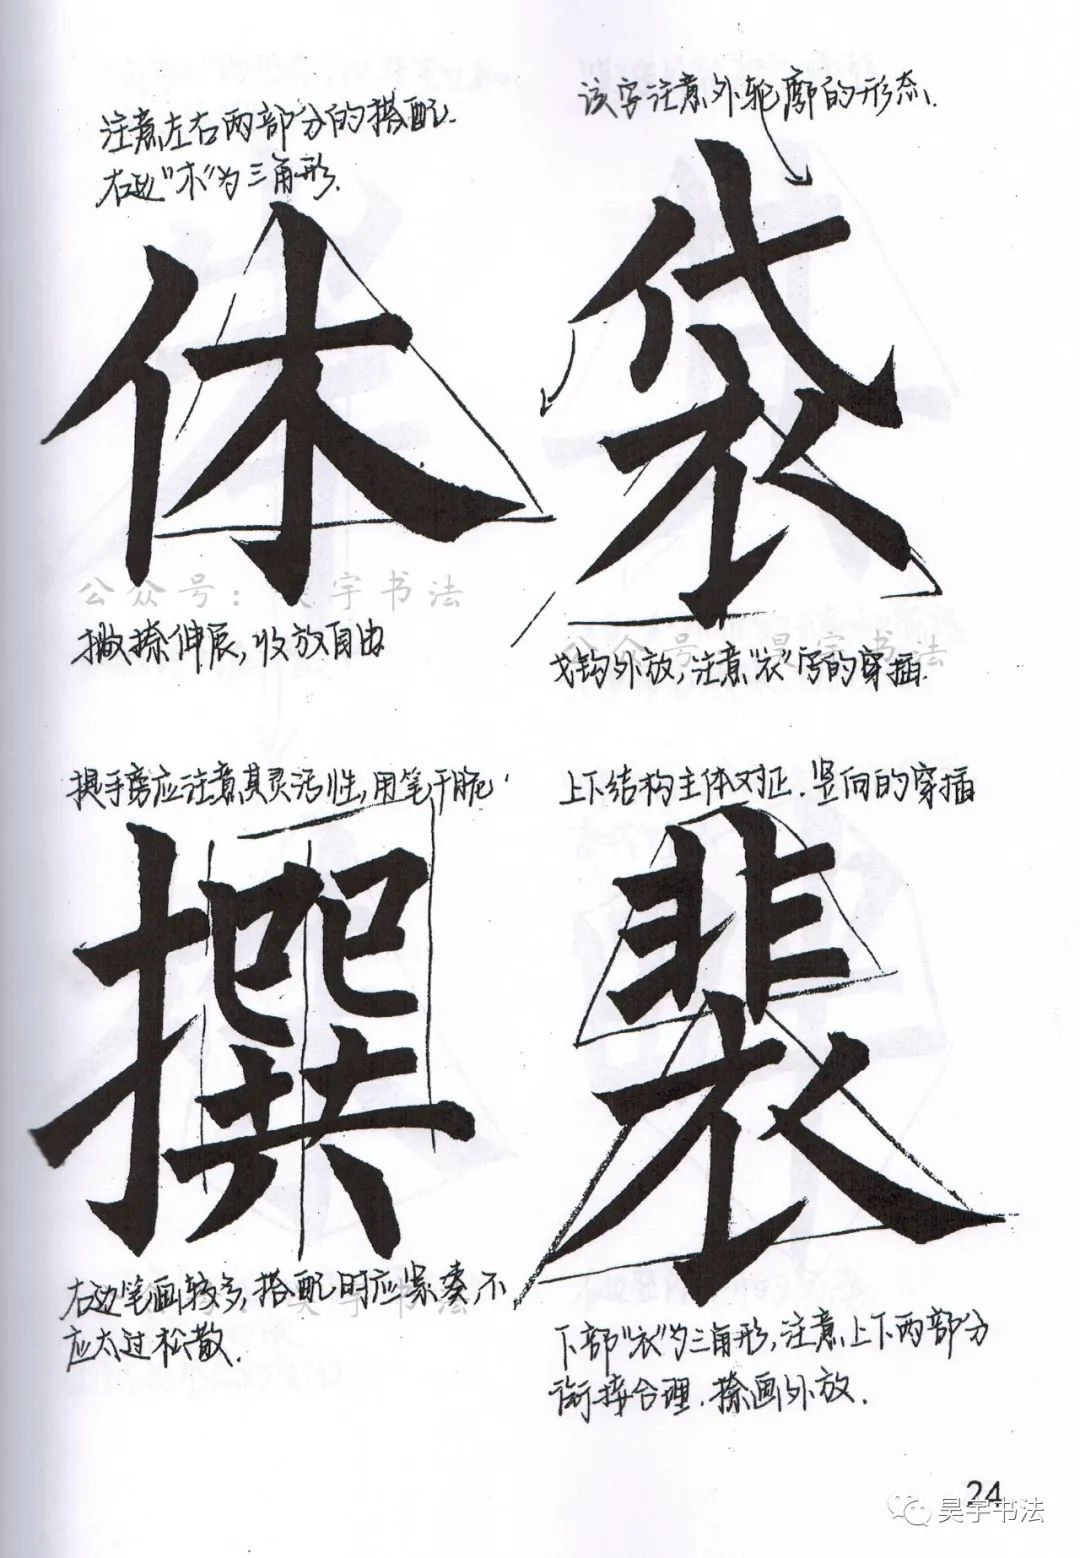 注意左右两部分的搭配.
右边“木”为三角形.
休
公众号：昊宇书法
撇捺伸展，收放自由
该字注意外轮廓的形态.
袋
公众号：昊宇书法
戈钩外放，注意“衣”字的穿插.
提手旁应注意其灵活性，用笔干脆.
撰
昊宇书法
右边笔画较多，搭配时应紧凑，不
应太过松散.
上下结构主体对正.竖向的穿插
裴
下部“衣”为三角形，注意上下两部分
衔接合理.捺画外放.
24
昊宇书法